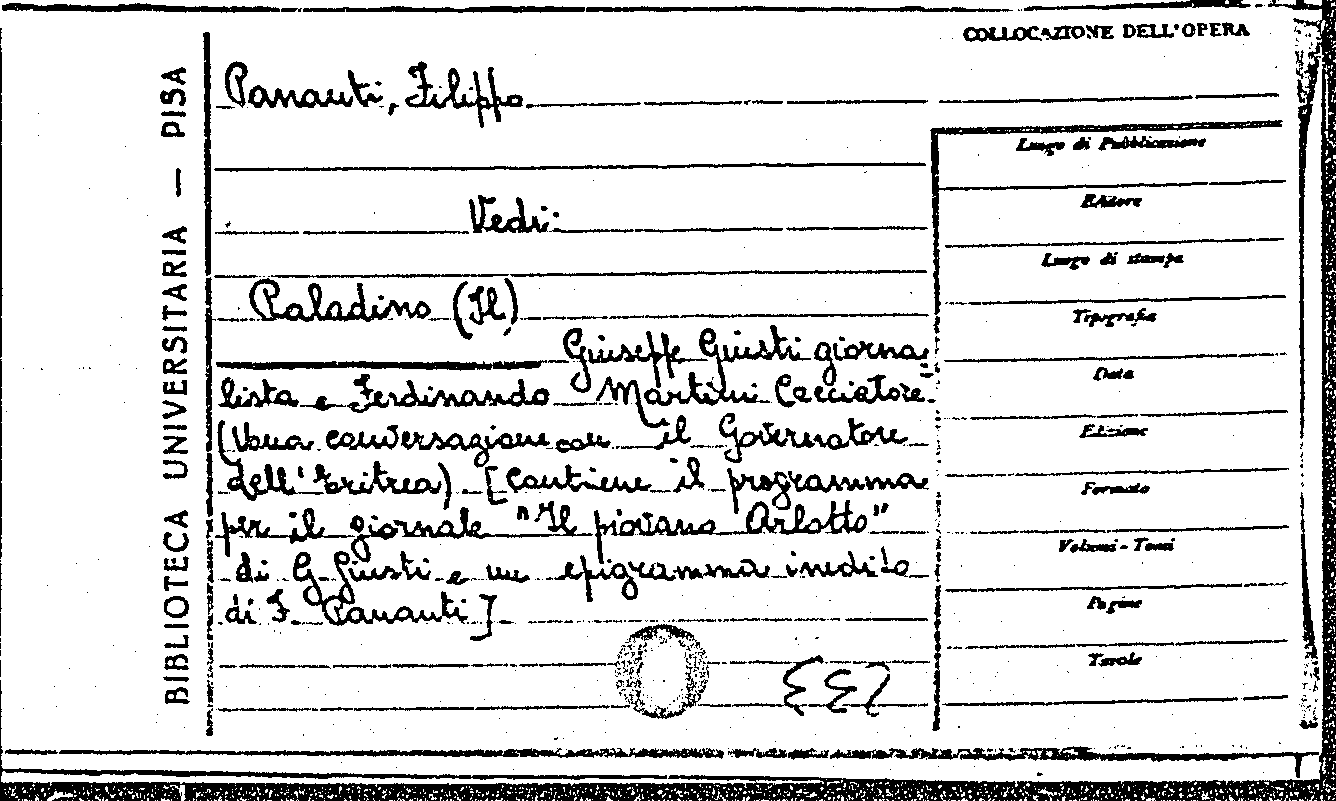 COLLOCAZIONE DELL'OPERA
BIBLIOTECA UNIVERSITARIA — PISA
Pananti, Filippo
Vedi:
Paladino (Il)
Giuseppe Giusti giorna-
lista e Ferdinando Martini Cacciatore.
(Una conversazione con il Governatore
dell'Eritrea) [Contiene il programma
per il giornale "Il piovano Arlotto"
di G. Giusti e un epigramma inedito
di F. Pananti]
Luogo di Pubblicazione
Editore
Luogo di stampa
Tipografia
Data
Edizione
Formato
Volumi - Tomi
Pagine
Tavole